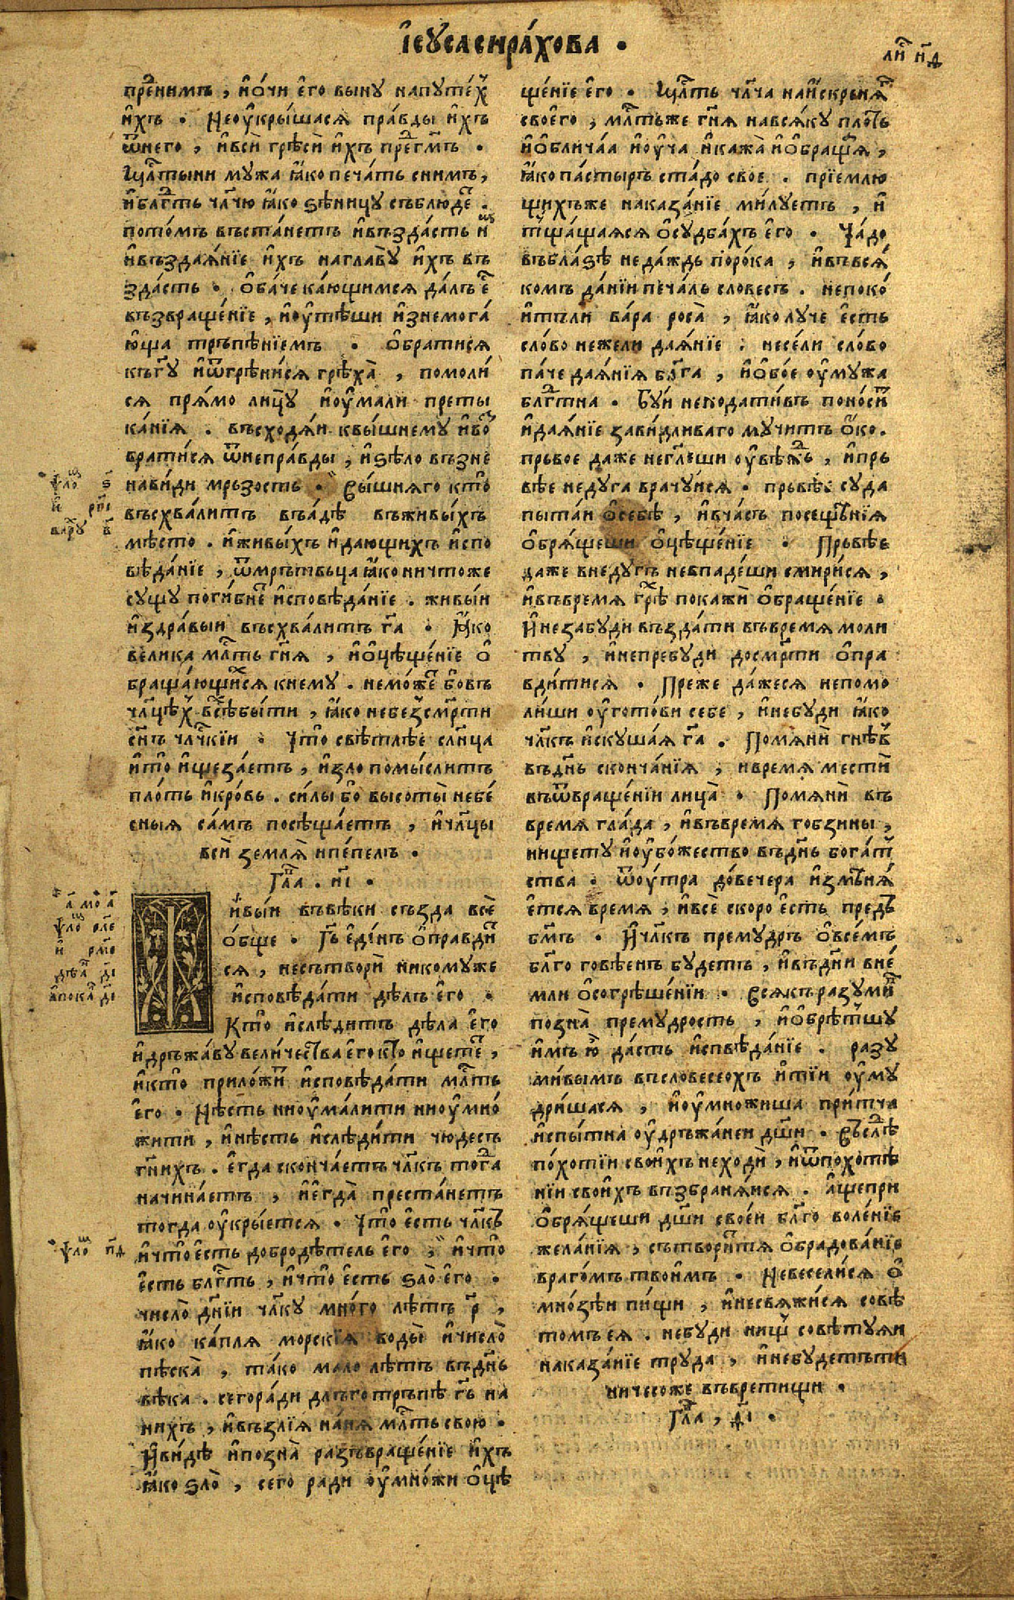 І҆сꙋсасира́хова .
ли҇ н҃д
пре́нимъ , и҆ѻ́чи є҆го выну напꙋте́х
и҆хъ . Неоу҆кры́шася пра́вды и҆хъ
ѿнего , и҆вси грѣси и҆хъ прег҃мъ .
мꙋжа ꙗ҆ко печа́ть сни́мъ ,
и҆бл҃гть чл҃чю ꙗ҆ко зѣницꙋ съблюде .
пото́мъ въста́нетъ и҆въздасть и҆
и҆въздаѧ́нїе и҆хъ наглавꙋ̀ и҆хъ въ
зда́сть . Ѻ҆ба́че ка́ющимся да́лъ є҆
възвраще́нїе , и҆оу҆тѣ́ши и҆знемога́
ю҆ща тръпѣ́нїемъ . Ѻ҆братися
къг҃ꙋ и҆ѿгрѣни́ся грѣха̀ , помоли́
ся пря́мо лицꙋ̀ и҆оу҆мали преты
ка́нїя . въсходя́и квы́шнемꙋ и҆ѡ҆
братися ѿнепра́вды , и҆ѕѣло възне
нави́ди мръзость . Вы́шняго кто̀
въсхвалитъ въа́дѣ въживы́хъ
мѣсто . и҆живы́хъ и҆даю́щихъ и҆спо
вѣ́данїе , ѿмрътвьца ꙗ҆коничтоже
сꙋщꙋ поги́бне и҆сповѣ́данїе . живы́и
и҆здра́выи въсхвалитъ г҃а . Ꙗ҆́ко
вели́ка мл҃ть г҃ня , и҆ѻ҆цѣще́нїе ѻ҆
браща́ющихся кнемꙋ . немо́же бо въ
чл҃цѣх всѣбы́ти , ꙗ҆ко небезсмрти
сн҃ъ чл҃чкїи . Что̀ свѣтлѣ́е сл҃нца
и҆то̀ и҆щеза́етъ , и҆зло помы́слитъ
пло́ть и҆кро́вь . си́лы бо высоты̀ небе́
сныя са́мъ посѣща́етъ , и҆чл҃цы
вси̏ земля̀ и҆пе́пелъ .
Гл҃а . и҃і .
Живы́и въвѣ́ки създа все̏
ѻ҆́бще . Гь є҆ди́нъ ѻ҆правди
ся , несътвори̏ никомꙋже
и҆сповѣ́дати дѣ́лъ є҆го̀ .
Кто̀ и҆слѣдитъ дѣла є҆го
и҆дръжа́вꙋ вели́чества є҆го кто и҆щете ,
и҆кто̀ прило́жи и҆сповѣ́дати мл҃ть
є҆го . Нѣ́сть ниоу҆ма́лити ниоу҆мно́
жити , и҆нѣ́сть и҆слѣди́ти чюде́съ
г҃нихъ . є҆гда̀ сконча́етъ чл҃къ тогда
начина́етъ , и҆є҆гда̀ преста́нетъ
тогда оу҆кры́ется . Что̀ є҆сть чл҃къ
и҆что̀ є҆сть добродѣ́тель є҆го̀ , и҆что̀
є҆сть бл҃гть , и҆что̀ є҆сть ѕло̀ є҆го .
число̀ д҃нїи чл҃кꙋ мно́го лѣтъ р҃ ,
ꙗ҆ко ка́пля морскі́я воды̀ и҆число̀
пѣска̀ , та́ко мало лѣтъ въд҃нь
вѣка . сегоради длъготръпѣ г҃ь на
нихъ , и҆възлїя на́ня мл҃ть свою .
И҆ви́дѣ и҆позна̀ разъвраще́нїе и҆хъ
ꙗ҆ко ѕло̀ , сего ради оу҆мно́жи ѻ҆цѣ
ще́нїе є҆го . мл҃ть чл҃ча наи́скрьня
свое́го , мл҃тьже г҃ня нався́кꙋ пло́ть
и҆ѻ҆блича́я и҆оу҆ча̀ и҆кажа̀ и҆ѻ҆браща́я ,
ꙗ҆ко па́стырь ста́до свое . прїемлю
щихъже наказа́нїе ми́лꙋетъ , и҆
тща́щаяся ѻ҆сꙋдба́хъ є҆го . Ча́до
въбла́ѕѣ неда́ждь поро́ка , и҆въвся́
комъ да́нїи печа́ль словесъ . непоко́
и҆тъли ва́ра роса̀ , ꙗ҆колꙋче є҆сть
сло́во не́жели дая́нїе . несе́ли сло́во
па́че дая́нїя бл҃га , и҆ѻ҆бо́е оу҆мꙋжа
бл҃гтна . Бꙋ́и непода́тивъ поно́си
и҆дая́нїе зави́дливаго мꙋчитъ ѻ҆ко .
прьвое да́же негл҃еши оу҆вѣжь , и҆прь
вѣе недꙋга врачꙋ́ися . прьвѣе сꙋда
пыта́и ѻ҆себѣ̀ , и҆вча́съ посеще́нїя
ѻ҆бря́щеши ѻ҆цѣще́нїе . Прьвѣе
да́же внедꙋ́гъ невпаде́ши смири́ся ,
и҆въвре́мя грѣ покажѝ ѻ҆браще́нїе .
И҆незабꙋди въздати въвре́мя моли
твꙋ , и҆непребꙋди досмрти ѻ҆пра
вди́тися . Пре́же да́жеся непомо
лиши оу҆гото́ви себе , и҆небꙋди ꙗ҆ко
чл҃къ и҆скꙋша́я г҃а . Помяни̏ гнѣв
въд҃нь сконча́нїя , и҆вре́мя ме́сти
въѿвраще́нїи лица̀ . Помяни̏ въ
вре́мя гла́да , и҆въвре́мя гобзины ,
нищетꙋ̀ и҆оу҆бо́жество въд҃нь бога́т
ства . ѿоу҆тра до́вечера и҆змѣня́
є҆тся вре́мя , и҆все̏ скоро є҆сть предъ
б҃мъ . И҆чл҃къ премꙋ́дръ ѻ҆все́мъ
бл҃го говѣ́енъ бꙋ́детъ , и҆въд҃ни вне́
мли ѻ҆согрѣше́нїи . Всякъ разꙋми́
позна̀ премꙋ́дрость , и҆ѻ҆брѣ́тшꙋ
и҆мъ ю҆̀ да́сть и҆спвѣ́данїе . разꙋ
ми́вымъ въсловесеохъ и҆ті́и оу҆мꙋ
дри́шася , и҆оу҆мно́жиша при́тча
и҆спы́тна оу҆дръжа́неи дш҃и . Въслѣ
по́хотїи свои́хъ неходи̏ , и҆ѿпохотѣ́
нїи свои́хъ възбраня́ися . а҆́щепри
ѻ҆бря́щеши дш҃и свое́и бл҃го воле́нїе
жела́нїя , сътвори́тя ѻ҆бра́дованїе
враго́мъ твои́мъ . Невесели́ся ѻ҆
мно́зѣи пи́щи , и҆несвяжи́ся совѣ́
томъ є҆я . небꙋди нищ совѣ́тꙋяи
наказа́нїе трꙋда , и҆небꙋдетъти
ничесоже въвретищи .
Гл҃а , ѳ҃і .